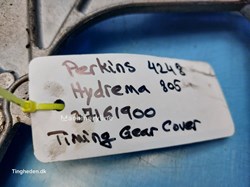 Perkins 4248
Hydrema 805
Timing Gear Cover
Tinghedes.dk